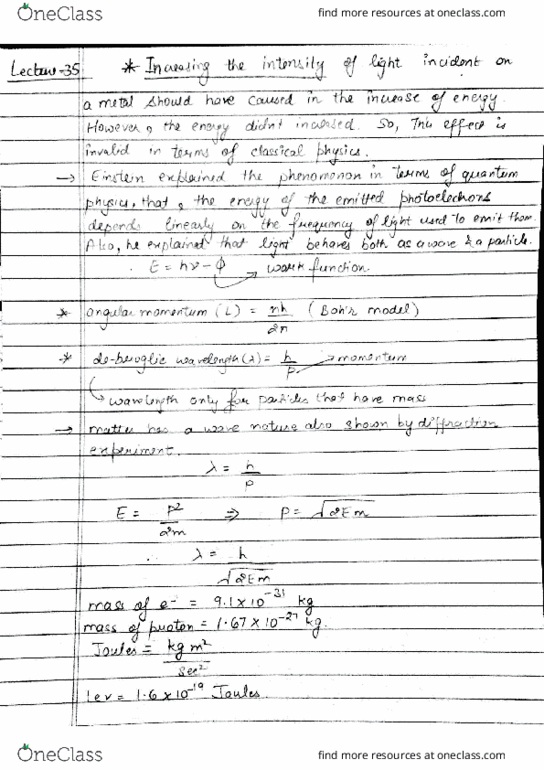 OneClass
find more resources at oneclass.com
Lecture-35 * Increasing the intensity of light incident on
a metal should have caused in the increase of energy.
However, the energy didn't increased. So, This effect is
invalid in terms of classical physics.
→ Einstein explained the phenomenon in terms of quantum
physics, that, the energy of the emitted photoelectrons
depends linearly on the frequency of light used to emit them.
Also, he explained that light behaves both as a wave & a particle.
∴ E = hν - ϕ → work function.
* angular momentum (L) = nh/2π (Bohr model)
* de-broglie wavelength (λ) = h/p → momentum
→ wavelength only for particles that have mass
→ matter has a wave nature also shown by diffraction
experiment.
λ = h/p
E = p²/2m ⇒ P = √2Em
∴ λ = h/√2Em
mass of e⁻ = 9.1 × 10⁻³¹ kg
mass of proton = 1.67 × 10⁻²⁷ kg.
Joules = kg m²/sec²
1ev = 1.6 × 10⁻¹⁹ Joules.
OneClass
find more resources at oneclass.com